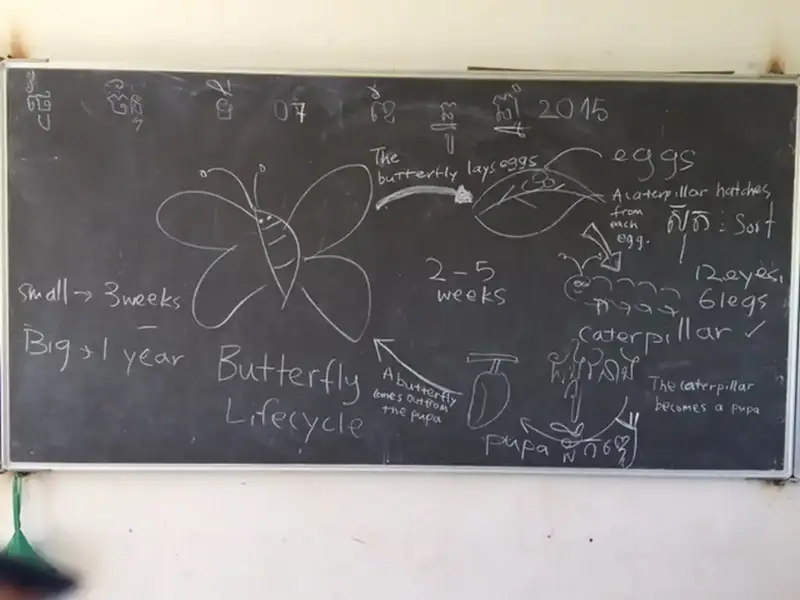 07
2015
The
butterfly lays eggs
eggs
A caterpillar hatches
from
each
egg.
: Sort
12 eyes,
6 legs
caterpillar ✓
2-5
weeks
small → 3 weeks
Big → 1 year
Butterfly
Lifecycle
A butterfly
comes out from
the pupa
The caterpillar
becomes a pupa
pupa